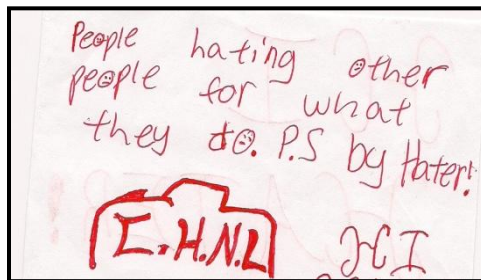 People hating other
people for what
they do. P.S by Hater!
E.H.N.L
HI